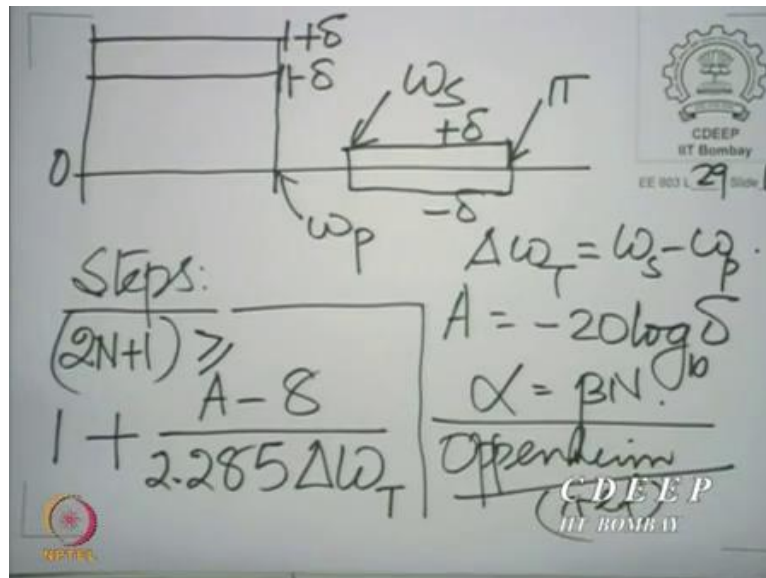 1+δ
1-δ
ωs
π
+δ
0
-δ
ωp
CDEEP
IIT Bombay
EE 603 L 29 Slide
Steps:
(2N+1) ≥
1 + A - 8 / 2.285 ΔωT
ΔωT = ωs - ωp.
A = -20 log10 δ
α = βN.
Oppenheim
CDEEP
IIT BOMBAY
NPTEL